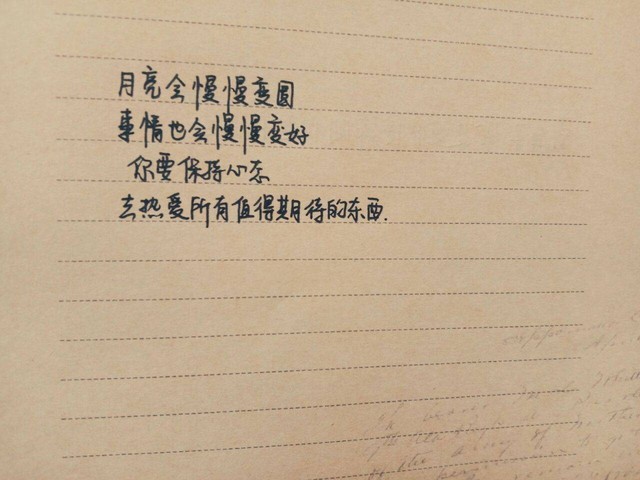 月亮会慢慢变圆
事情也会慢慢变好
你要保持心态
去热爱所有值得期待的东西.